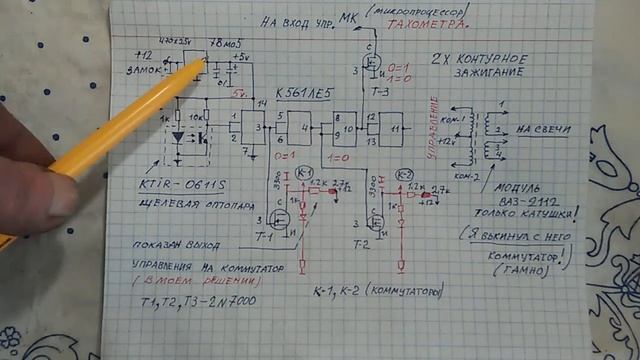 НА ВХОД УПР. МК (микропроцессор)
ТАХОМЕТРА.
470x25v 78М05
+12 +5v
ЗАМОК
0,1
5v.
К561ЛЕ5
С
З И
0=1
1=0
Т-3
2Х КОНТУРНОЕ
ЗАЖИГАНИЕ
1к 10к
14
1 2 3 5 6 4 8 9 10 12 13 11
7
0=1 1=0
УПРАВЛЕНИЕ
КОМ-1
+12v
КОМ-2
1
2
3
4
НА СВЕЧИ
KTIR-0611S
ЩЕЛЕВАЯ ОПТОПАРА
К-1 К-2
3300 1,2к 2,7к +12
3300 1,2к 2,7к +12
1к 1к
С С
З И З И
Т-1 Т-2
МОДУЛЬ
ВАЗ-2112
ТОЛЬКО КАТУШКИ!
(Я ВЫКИНУЛ С НЕГО
КОММУТАТОР!)
(ГАМНО)
ПОКАЗАН ВЫХОД
УПРАВЛЕНИЯ НА КОММУТАТОР
(В МОЕМ РЕШЕНИИ)
Т1, Т2, Т3-2N7000
К-1, К-2 (КОММУТАТОРЫ)